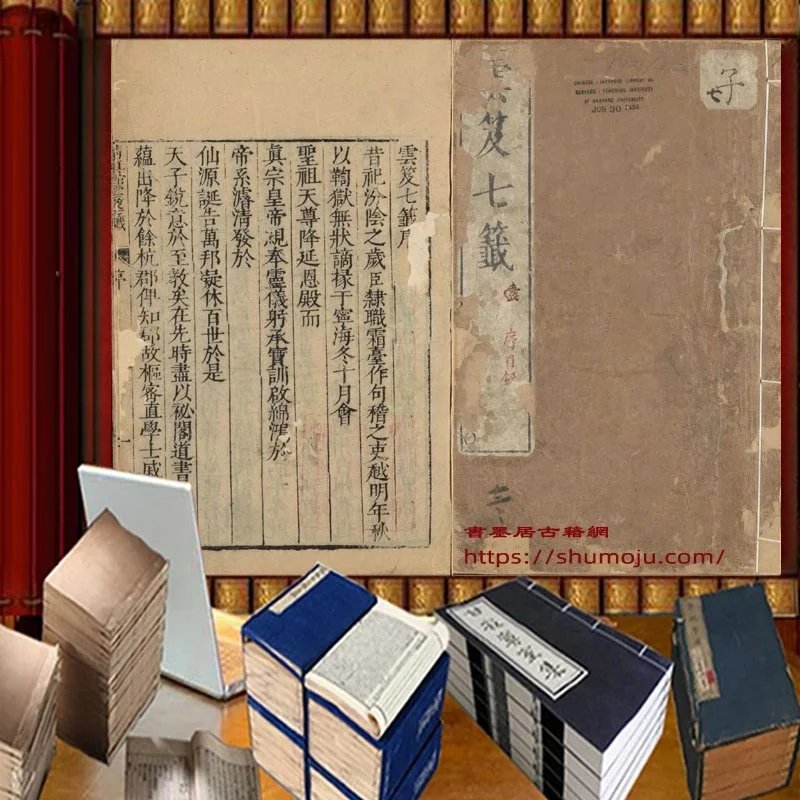 子
七
CHINESE-JAPANESE LIBRARY OF
HARVARD-YENCHING INSTITUTE
AT HARVARD UNIVERSITY
JUN 30 1953
笈七籤
序目錄
雲笈七籤序
昔祀汾陰之歲臣隸職霜臺作句稽之吏越明年秋
以鞫獄無狀謫掾于寧海冬十月會
聖祖天尊降延恩殿而
眞宗皇帝親奉靈儀躬承寶訓啟綿鴻於
帝系濬清發於
仙源誕告萬邦凝休百世於是
天子銳意於至教矣在先時盡以祕閣道書
蘊出降於餘杭郡俾知郡故樞密直學士戚
序
一
書墨居古籍網
https://shumoju.com/